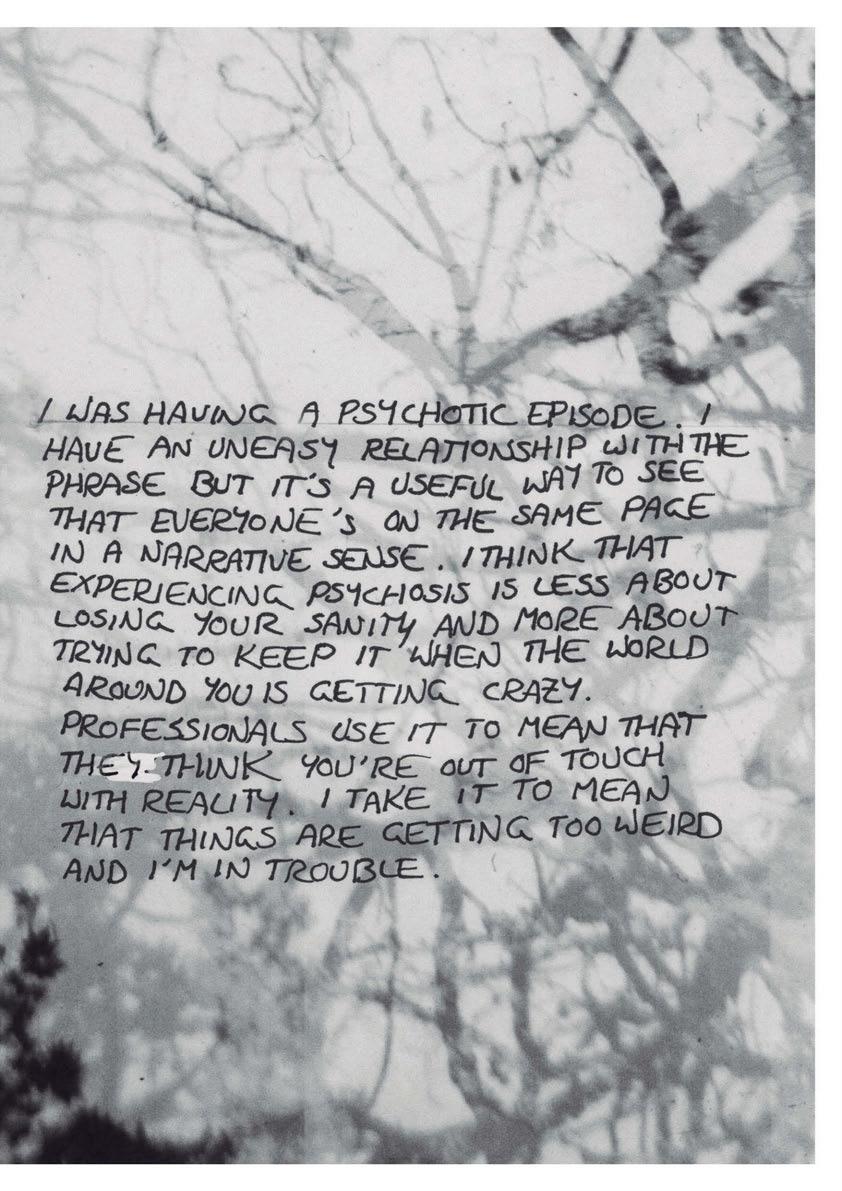 I WAS HAVING A PSYCHOTIC EPISODE. I
HAVE AN UNEASY RELATIONSHIP WITH THE
PHRASE BUT IT'S A USEFUL WAY TO SEE
THAT EVERYONE'S ON THE SAME PAGE
IN A NARRATIVE SENSE. I THINK THAT
EXPERIENCING PSYCHOSIS IS LESS ABOUT
LOSING YOUR SANITY AND MORE ABOUT
TRYING TO KEEP IT WHEN THE WORLD
AROUND YOU IS GETTING CRAZY.
PROFESSIONALS USE IT TO MEAN THAT
THEY THINK YOU'RE OUT OF TOUCH
WITH REALITY. I TAKE IT TO MEAN
THAT THINGS ARE GETTING TOO WEIRD
AND I'M IN TROUBLE.